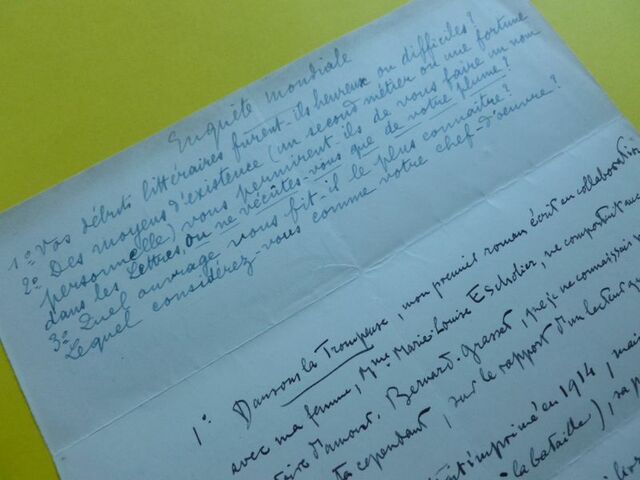 Enquête mondiale
1º Vos débuts littéraires furent-ils heureux ou difficiles?
2º Des moyens d'existence (un second métier ou une fortune
personnelle) vous permirent ils de vous faire un nom
dans les Lettres, ou ne vécûtes-vous que de votre plume?
3º Quel ouvrage vous fit-il le plus connaître?
Lequel considérez-vous comme votre chef-d'oeuvre?
1º Dansons la Trompeuse, mon premier roman écrit en collaboration
avec ma femme, Mme Marie-Louise Escholier, ne comportait
d'amorst. Bernard Grasset, que je ne connaissais
cependant, sur le rapport d'un lecteur
imprimé en 1914, mais
la bataille),